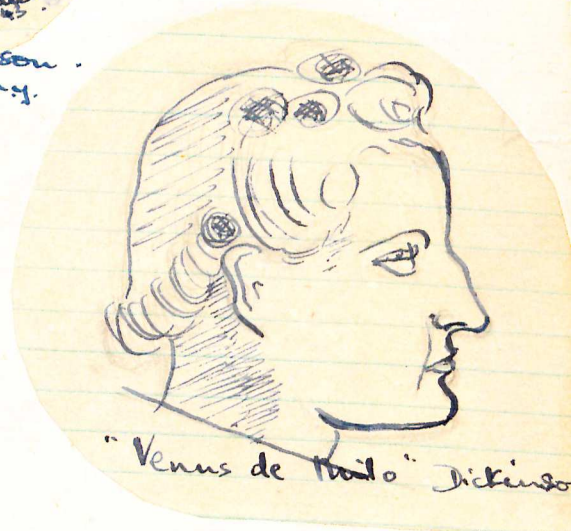 45.
son.
"Venus de Milo" Dickinso